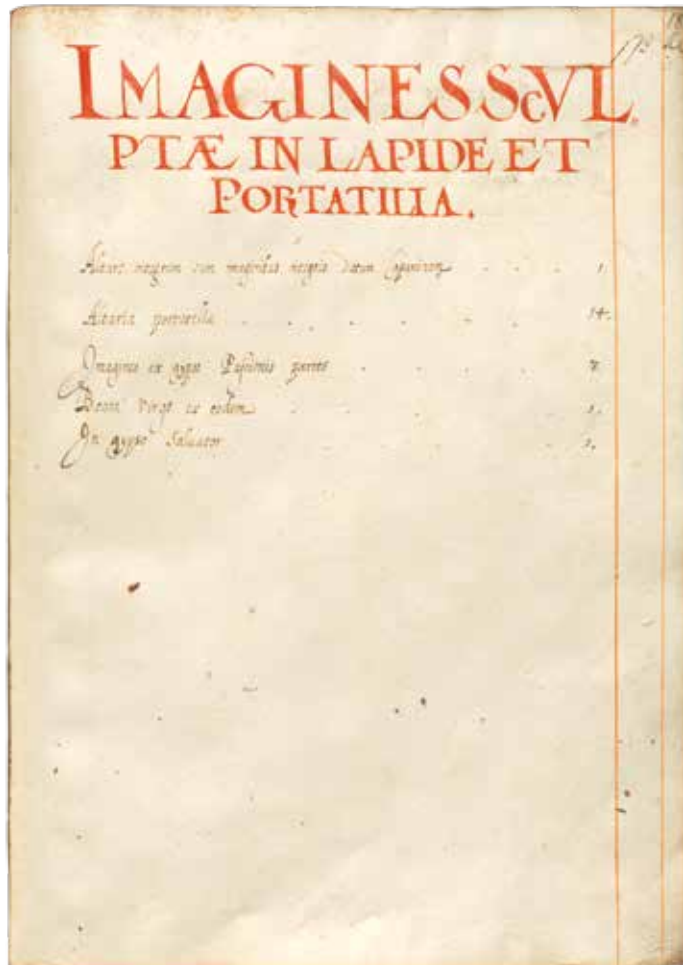 IMAGINES SCVL
PTÆ IN LAPIDE ET
PORTATILIA.
Altare integrum cum imaginibus 1.
Altaria portatilia 14.
Imagines ex gypso Passionis partes
Beate Virg ex eodem 1.
In gypso Saluator 1.